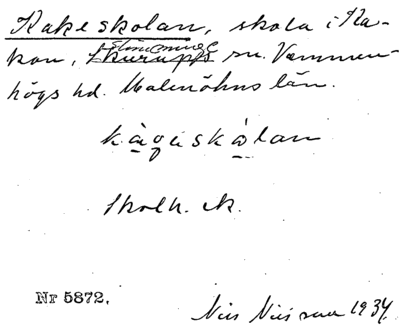 Kakeskolan, skola i Ka-
kan, Skurups sn. Vemmen-
högs hd. Malmöhus län.
kągeskǫlan
Skolk. ek.
Nr 5872.
Nils Nilsson 1934.